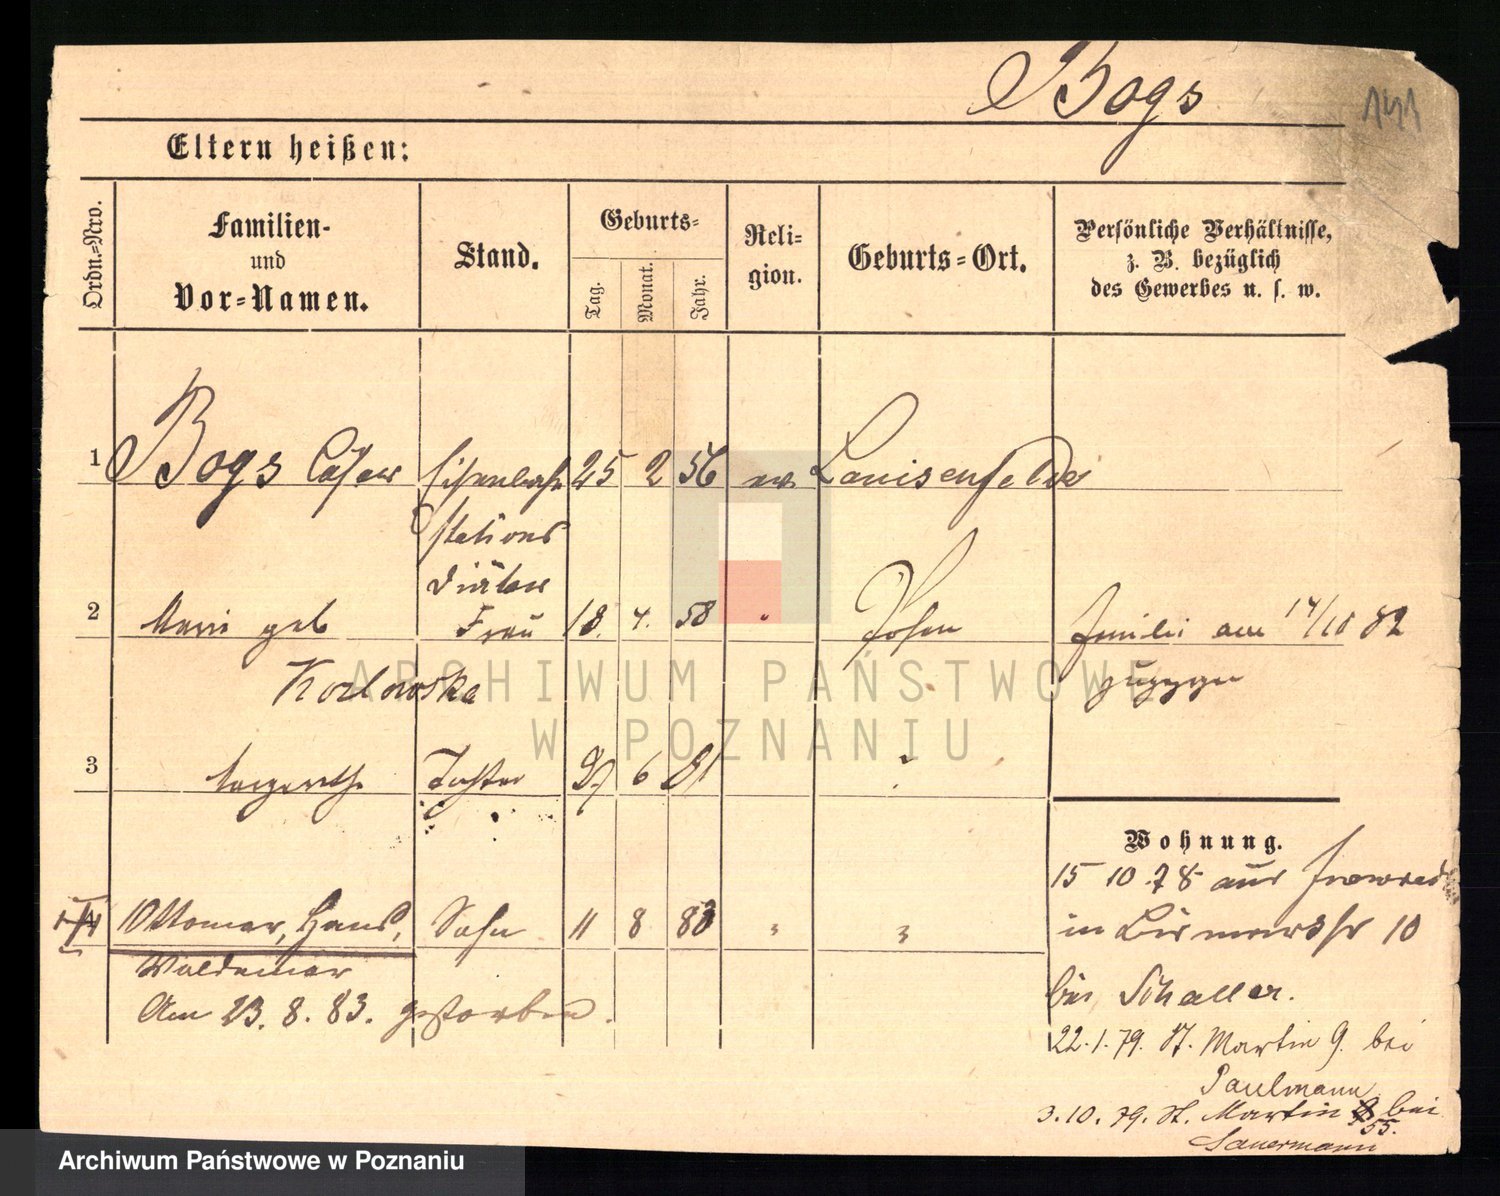 Bogs
141
Eltern heißen:
Ordn.-Nro.
Familien-
und
Vor-Namen.
Stand.
Geburts-
Tag.
Monat.
Jahr.
Reli-
gion.
Geburts-Ort.
Persönliche Verhältnisse,
z. B. bezüglich
des Gewerbes u. s. w.
1 Bogs Eisenbahn 25 2 56 ev. Louisenfelde
Stations
Diätar
2 Marie geb Frau 18. 4. 58 " Posen Familie am 17/10 82
Kozlowska zugezogen
3 Margarethe Tochter 27 6 81 "
Wohnung.
15 10 78 aus Inowrad
Ottomar, Hans, Sohn 11 8 83 " " in Bismarckstr 10
Waldemar
Am 23. 8. 83. gestorben.
bei Schaller.
22.1.79. St. Martin 9. bei
Paulmann
3.10.79. St. Martin bei
55.
Sauermann
ARCHIWUM PAŃSTWOWE
W POZNANIU
Archiwum Państwowe w Poznaniu